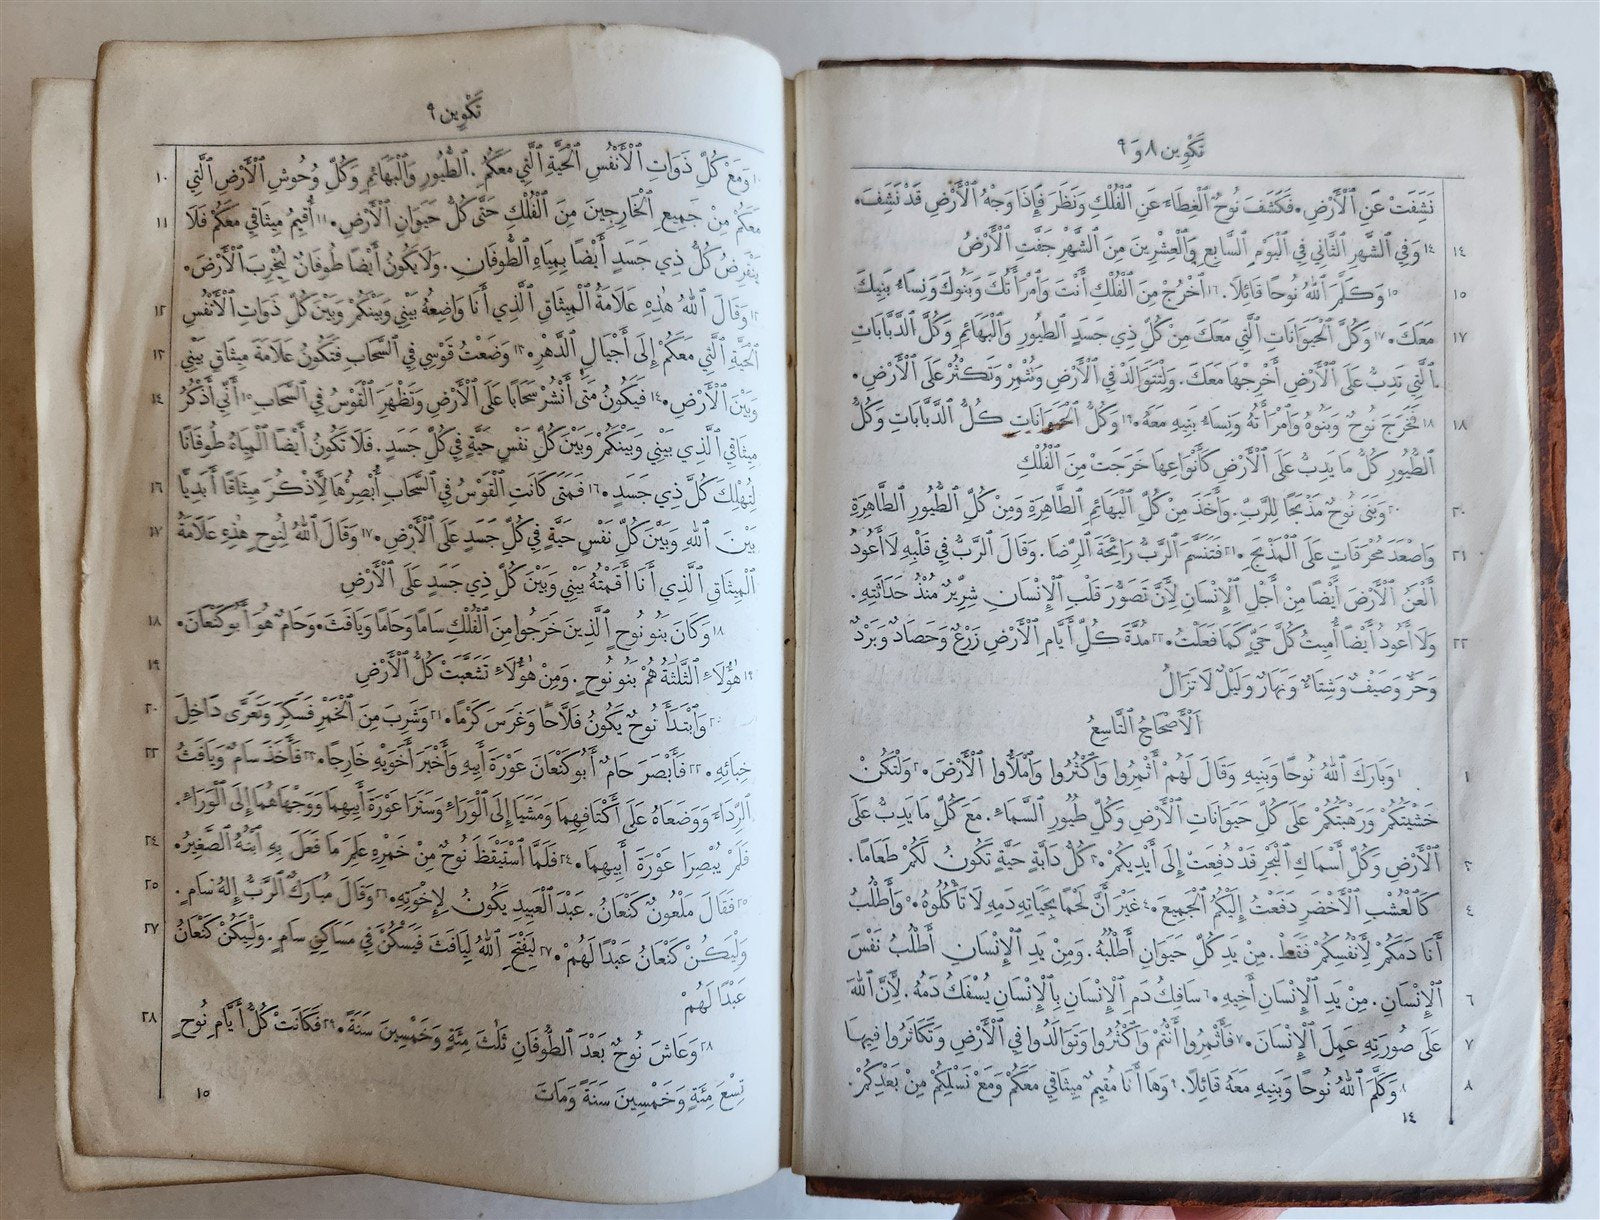 تَكْوِين ٨ و ٩
نَشَفَتْ عَنِ ٱلْأَرْضِ. فَكَشَفَ نُوحٌ ٱلْغِطَاءَ عَنِ ٱلْفُلْكِ وَنَظَرَ فَإِذَا وَجْهُ ٱلْأَرْضِ قَدْ نَشِفَ.
١٤ ١٤ وَفِي ٱلشَّهْرِ ٱلثَّانِي فِي ٱلْيَوْمِ ٱلسَّابِعِ وَٱلْعِشْرِينَ مِنَ ٱلشَّهْرِ جَفَّتِ ٱلْأَرْضُ
١٥ ١٥ وَكَلَّمَ ٱللهُ نُوحًا قَائِلًا. ١٦ ٱخْرُجْ مِنَ ٱلْفُلْكِ أَنْتَ وَٱمْرَأَتُكَ وَبَنُوكَ وَنِسَاءُ بَنِيكَ
١٧ مَعَكَ. ١٧ وَكُلَّ ٱلْحَيَوَانَاتِ ٱلَّتِي مَعَكَ مِنْ كُلِّ ذِي جَسَدٍ ٱلطُّيُورِ وَٱلْبَهَائِمِ وَكُلَّ ٱلدَّبَّابَاتِ
ٱلَّتِي تَدِبُّ عَلَى ٱلْأَرْضِ أَخْرِجْهَا مَعَكَ. وَلْتَتَوَالَدْ فِي ٱلْأَرْضِ وَتُثْمِرْ وَتَكْثُرْ عَلَى ٱلْأَرْضِ.
١٨ ١٨ فَخَرَجَ نُوحٌ وَبَنُوهُ وَٱمْرَأَتُهُ وَنِسَاءُ بَنِيهِ مَعَهُ. ١٩ وَكُلُّ ٱلْحَيَوَانَاتِ كُلُّ ٱلدَّبَّابَاتِ وَكُلُّ
ٱلطُّيُورِ كُلُّ مَا يَدِبُّ عَلَى ٱلْأَرْضِ كَأَنْوَاعِهَا خَرَجَتْ مِنَ ٱلْفُلْكِ
٢٠ ٢٠ وَبَنَى نُوحٌ مَذْبَحًا لِلرَّبِّ. وَأَخَذَ مِنْ كُلِّ ٱلْبَهَائِمِ ٱلطَّاهِرَةِ وَمِنْ كُلِّ ٱلطُّيُورِ ٱلطَّاهِرَةِ
٢١ وَأَصْعَدَ مُحْرَقَاتٍ عَلَى ٱلْمَذْبَحِ. ٢١ فَتَنَسَّمَ ٱلرَّبُّ رَائِحَةَ ٱلرِّضَا. وَقَالَ ٱلرَّبُّ فِي قَلْبِهِ لَا أَعُودُ
أَلْعَنُ ٱلْأَرْضَ أَيْضًا مِنْ أَجْلِ ٱلْإِنْسَانِ لِأَنَّ تَصَوُّرَ قَلْبِ ٱلْإِنْسَانِ شِرِّيرٌ مُنْذُ حَدَاثَتِهِ.
٢٢ وَلَا أَعُودُ أَيْضًا أُمِيتُ كُلَّ حَيٍّ كَمَا فَعَلْتُ. ٢٢ مُدَّةَ كُلِّ أَيَّامِ ٱلْأَرْضِ زَرْعٌ وَحَصَادٌ وَبَرْدٌ
وَحَرٌّ وَصَيْفٌ وَشِتَاءٌ وَنَهَارٌ وَلَيْلٌ لَا تَزَالُ
ٱلْأَصْحَاحُ ٱلتَّاسِعُ
١ ١ وَبَارَكَ ٱللهُ نُوحًا وَبَنِيهِ وَقَالَ لَهُمْ أَثْمِرُوا وَٱكْثُرُوا وَٱمْلَأُوا ٱلْأَرْضَ. ٢ وَلْتَكُنْ
خَشْيَتُكُمْ وَرَهْبَتُكُمْ عَلَى كُلِّ حَيَوَانَاتِ ٱلْأَرْضِ وَكُلِّ طُيُورِ ٱلسَّمَاءِ. مَعَ كُلِّ مَا يَدِبُّ عَلَى
٣ ٱلْأَرْضِ وَكُلِّ أَسْمَاكِ ٱلْبَحْرِ قَدْ دُفِعَتْ إِلَى أَيْدِيكُمْ. ٣ كُلُّ دَابَّةٍ حَيَّةٍ تَكُونُ لَكُمْ طَعَامًا.
٤ كَٱلْعُشْبِ ٱلْأَخْضَرِ دَفَعْتُ إِلَيْكُمُ ٱلْجَمِيعَ. ٤ غَيْرَ أَنَّ لَحْمًا بِحَيَاتِهِ دَمِهِ لَا تَأْكُلُوهُ. ٥ وَأَطْلُبُ
أَنَا دَمَكُمْ لِأَنْفُسِكُمْ فَقَطْ. مِنْ يَدِ كُلِّ حَيَوَانٍ أَطْلُبُهُ. وَمِنْ يَدِ ٱلْإِنْسَانِ أَطْلُبُ نَفْسَ
٦ ٱلْإِنْسَانِ. مِنْ يَدِ ٱلْإِنْسَانِ أَخِيهِ. ٦ سَافِكُ دَمِ ٱلْإِنْسَانِ بِٱلْإِنْسَانِ يُسْفَكُ دَمُهُ. لِأَنَّ ٱللهَ
٧ عَلَى صُورَتِهِ عَمِلَ ٱلْإِنْسَانَ. ٧ فَأَثْمِرُوا أَنْتُمْ وَٱكْثُرُوا وَتَوَالَدُوا فِي ٱلْأَرْضِ وَتَكَاثَرُوا فِيهَا
٨ ٨ وَكَلَّمَ ٱللهُ نُوحًا وَبَنِيهِ مَعَهُ قَائِلًا. ٩ وَهَا أَنَا مُقِيمٌ مِيثَاقِي مَعَكُمْ وَمَعَ نَسْلِكُمْ مِنْ بَعْدِكُمْ.
١٤
تَكْوِين ٩
١٠ ١٠ وَمَعَ كُلِّ ذَوَاتِ ٱلْأَنْفُسِ ٱلْحَيَّةِ ٱلَّتِي مَعَكُمْ. ٱلطُّيُورِ وَٱلْبَهَائِمِ وَكُلِّ وُحُوشِ ٱلْأَرْضِ ٱلَّتِي
١١ مَعَكُمْ مِنْ جَمِيعِ ٱلْخَارِجِينَ مِنَ ٱلْفُلْكِ حَتَّى كُلُّ حَيَوَانِ ٱلْأَرْضِ. ١١ أُقِيمُ مِيثَاقِي مَعَكُمْ فَلَا
يَنْقَرِضُ كُلُّ ذِي جَسَدٍ أَيْضًا بِمِيَاهِ ٱلطُّوفَانِ. وَلَا يَكُونُ أَيْضًا طُوفَانٌ لِيُخْرِبَ ٱلْأَرْضَ.
١٢ ١٢ وَقَالَ ٱللهُ هٰذِهِ عَلَامَةُ ٱلْمِيثَاقِ ٱلَّذِي أَنَا وَاضِعُهُ بَيْنِي وَبَيْنَكُمْ وَبَيْنَ كُلِّ ذَوَاتِ ٱلْأَنْفُسِ
١٣ ٱلْحَيَّةِ ٱلَّتِي مَعَكُمْ إِلَى أَجْيَالِ ٱلدَّهْرِ. ١٣ وَضَعْتُ قَوْسِي فِي ٱلسَّحَابِ فَتَكُونُ عَلَامَةَ مِيثَاقٍ بَيْنِي
١٤ وَبَيْنَ ٱلْأَرْضِ. ١٤ فَيَكُونُ مَتَى أَنْشُرْ سَحَابًا عَلَى ٱلْأَرْضِ وَتَظْهَرِ ٱلْقَوْسُ فِي ٱلسَّحَابِ ١٥ أَنِّي أَذْكُرُ
مِيثَاقِي ٱلَّذِي بَيْنِي وَبَيْنَكُمْ وَبَيْنَ كُلِّ نَفْسٍ حَيَّةٍ فِي كُلِّ جَسَدٍ. فَلَا تَكُونُ أَيْضًا ٱلْمِيَاهُ طُوفَانًا
١٦ لِتُهْلِكَ كُلَّ ذِي جَسَدٍ. ١٦ فَمَتَى كَانَتِ ٱلْقَوْسُ فِي ٱلسَّحَابِ أُبْصِرُهَا لِأَذْكُرَ مِيثَاقًا أَبَدِيًّا
١٧ بَيْنَ ٱللهِ وَبَيْنَ كُلِّ نَفْسٍ حَيَّةٍ فِي كُلِّ جَسَدٍ عَلَى ٱلْأَرْضِ. ١٧ وَقَالَ ٱللهُ لِنُوحٍ هٰذِهِ عَلَامَةُ
ٱلْمِيثَاقِ ٱلَّذِي أَنَا أَقَمْتُهُ بَيْنِي وَبَيْنَ كُلِّ ذِي جَسَدٍ عَلَى ٱلْأَرْضِ
١٨ ١٨ وَكَانَ بَنُو نُوحٍ ٱلَّذِينَ خَرَجُوا مِنَ ٱلْفُلْكِ سَامًا وَحَامًا وَيَافَثَ. وَحَامٌ هُوَ أَبُو كَنْعَانَ.
١٩ ١٩ هٰؤُلَاءِ ٱلثَّلٰثَةُ هُمْ بَنُو نُوحٍ. وَمِنْ هٰؤُلَاءِ تَشَعَّبَتْ كُلُّ ٱلْأَرْضِ
٢٠ ٢٠ وَٱبْتَدَأَ نُوحٌ يَكُونُ فَلَّاحًا وَغَرَسَ كَرْمًا. ٢١ وَشَرِبَ مِنَ ٱلْخَمْرِ فَسَكِرَ وَتَعَرَّى دَاخِلَ
٢٢ خِبَائِهِ. ٢٢ فَأَبْصَرَ حَامٌ أَبُو كَنْعَانَ عَوْرَةَ أَبِيهِ وَأَخْبَرَ أَخَوَيْهِ خَارِجًا. ٢٣ فَأَخَذَ سَامٌ وَيَافَثُ
ٱلرِّدَاءَ وَوَضَعَاهُ عَلَى أَكْتَافِهِمَا وَمَشَيَا إِلَى ٱلْوَرَاءِ وَسَتَرَا عَوْرَةَ أَبِيهِمَا وَوَجْهَاهُمَا إِلَى ٱلْوَرَاءِ.
٢٤ فَلَمْ يُبْصِرَا عَوْرَةَ أَبِيهِمَا. ٢٤ فَلَمَّا ٱسْتَيْقَظَ نُوحٌ مِنْ خَمْرِهِ عَلِمَ مَا فَعَلَ بِهِ ٱبْنُهُ ٱلصَّغِيرُ.
٢٥ ٢٥ فَقَالَ مَلْعُونٌ كَنْعَانُ. عَبْدَ ٱلْعَبِيدِ يَكُونُ لِإِخْوَتِهِ. ٢٦ وَقَالَ مُبَارَكٌ ٱلرَّبُّ إِلٰهُ سَامٍ.
٢٧ وَلْيَكُنْ كَنْعَانُ عَبْدًا لَهُمْ. ٢٧ لِيَفْتَحِ ٱللهُ لِيَافَثَ فَيَسْكُنَ فِي مَسَاكِنِ سَامٍ. وَلْيَكُنْ كَنْعَانُ
عَبْدًا لَهُمْ
٢٨ ٢٨ وَعَاشَ نُوحٌ بَعْدَ ٱلطُّوفَانِ ثَلٰثَ مِئَةٍ وَخَمْسِينَ سَنَةً. ٢٩ فَكَانَتْ كُلُّ أَيَّامِ نُوحٍ
تِسْعَ مِئَةٍ وَخَمْسِينَ سَنَةً وَمَاتَ
١٥